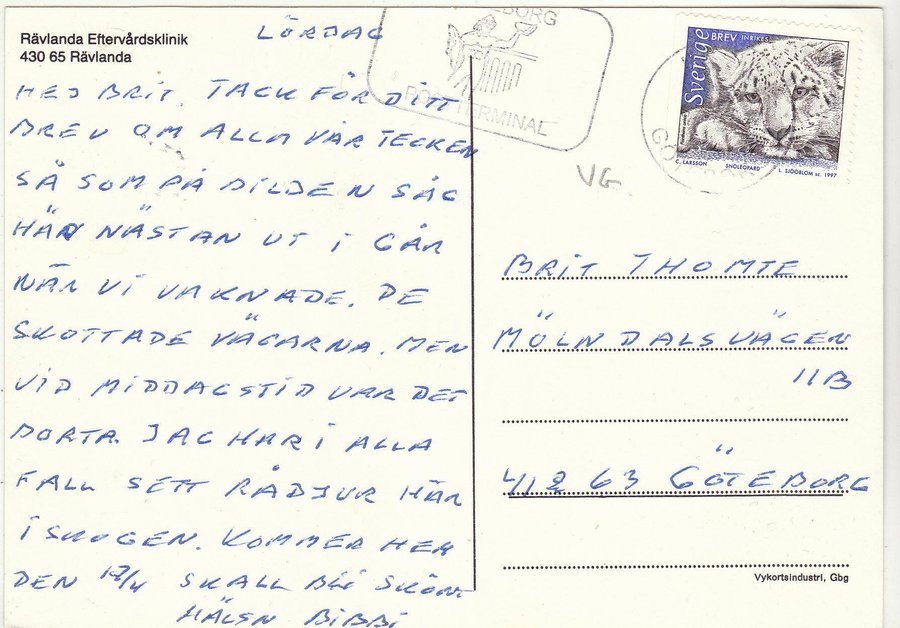 Rävlanda Eftervårdsklinik
430 65 Rävlanda
LÖRDAG
HEJ BRIT. TACK FÖR DITT
BREV OM ALLA VÅRTECKEN
SÅ SOM PÅ BILDEN SÅG
HÄR NÄSTAN UT I GÅR
NÄR VI VAKNADE. DE
SKOTTADE VÄGARNA. MEN
VID MIDDAGSTID VAR DET
BORTA. JAG HAR I ALLA
FALL SETT RÅDJUR HÄR
I SKOGEN. KOMMER HEM
DEN 17/4 SKALL BLI SKÖNT
HÄLSN BIBBI
BORG
POSTTERMINAL
Sverige BREV INRIKES
C. LARSSON SNÖLEOPARD L. SJÖÖBLOM sc. 1997
VG
BRIT THOMTE
MÖLNDALSVÄGEN
11B
412 63 GÖTEBORG
Vykortsindustri, Gbg